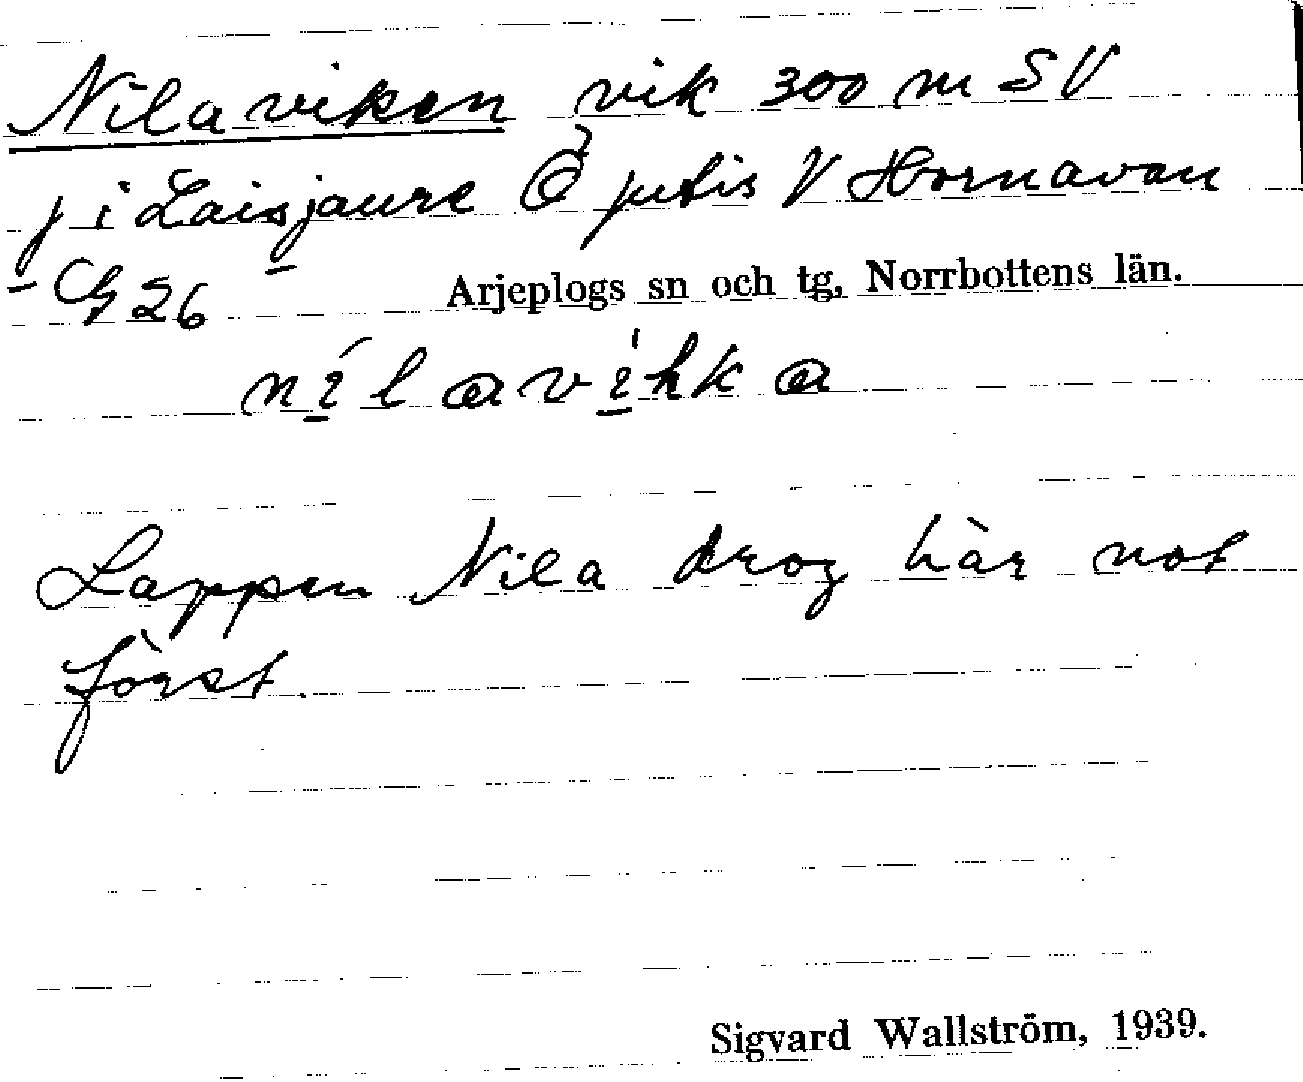 Nilaviken vik 300 m SV
j i Laisjaure Ö jutis V Hornavan
G 26
Arjeplogs sn och tg, Norrbottens län.
Lappen Nila drog här not
först.
Sigvard Wallström, 1939.